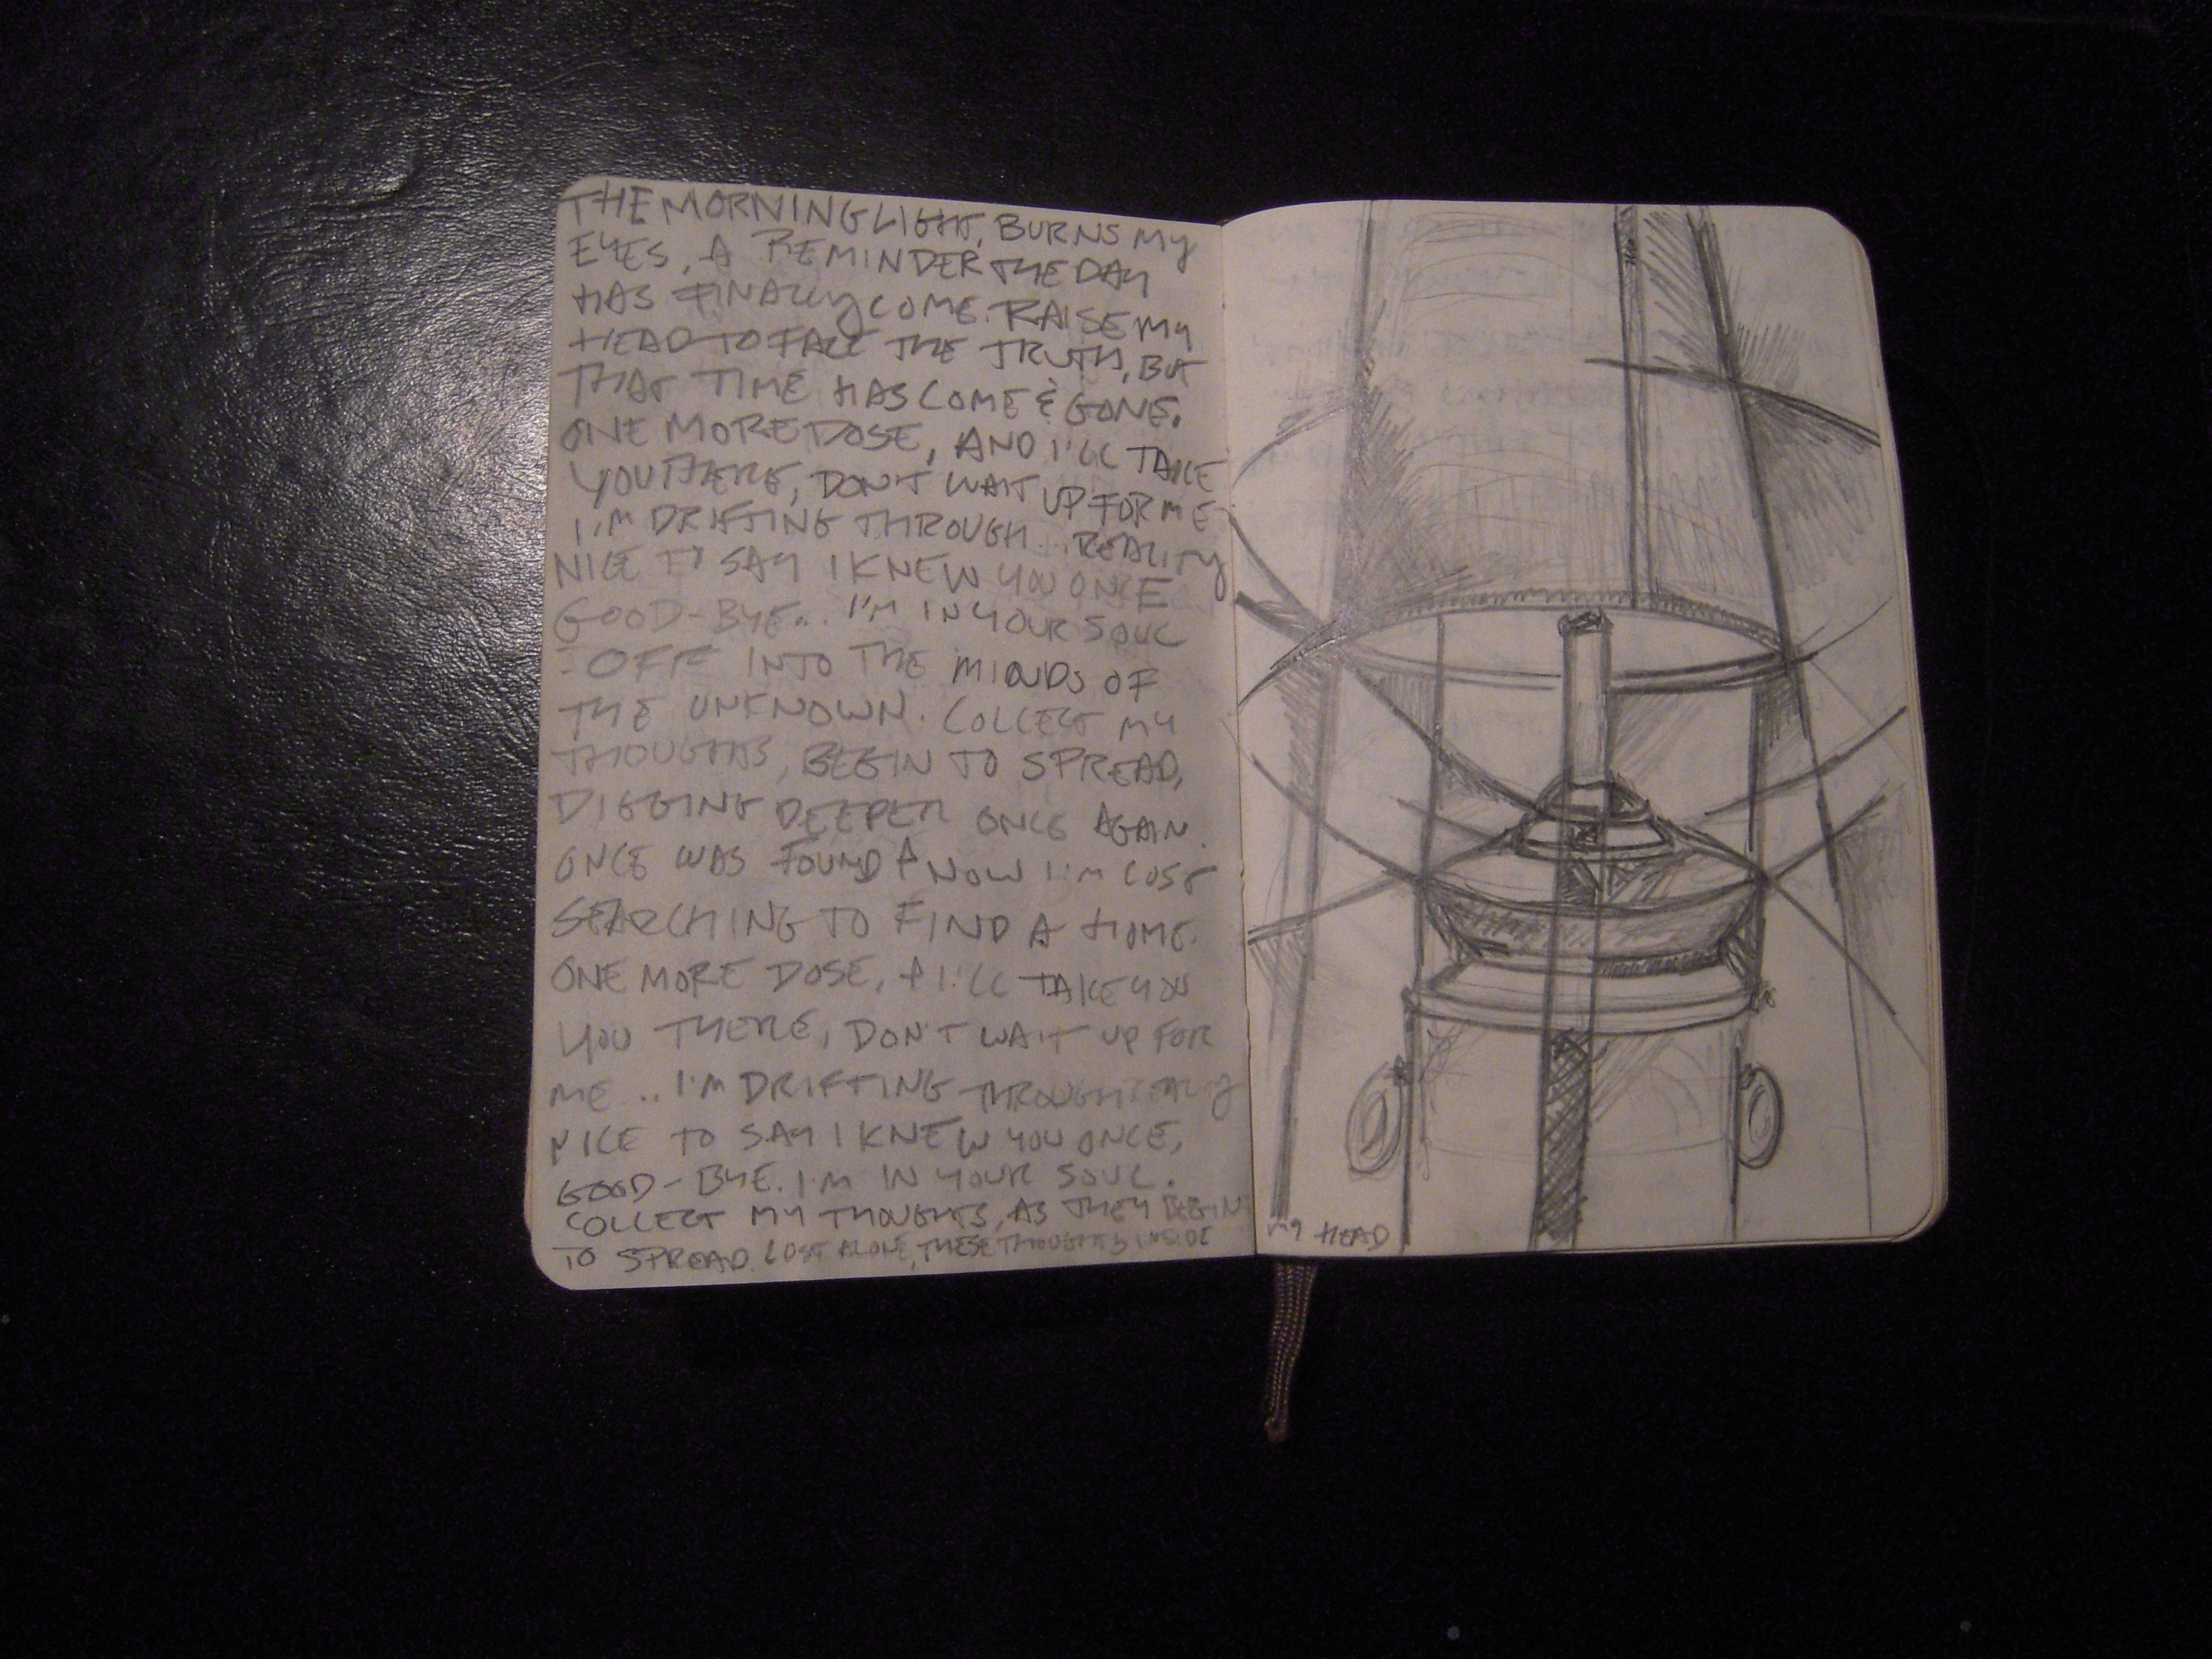 THE MORNING LIGHT, BURNS MY
EYES, A REMINDER THE DAY
HAS FINALLY COME. RAISE MY
HEAD TO FACE THE TRUTH, BUT
THAT TIME HAS COME & GONE.
ONE MORE DOSE, AND I'LL TAKE
YOU THERE, DON'T WAIT UP FOR ME
I'M DRIFTING THROUGH... REALITY
NICE TO SAY I KNEW YOU ONCE
GOOD-BYE... I'M IN YOUR SOUL
OFF INTO THE MINDS OF
THE UNKNOWN. COLLECT MY
THOUGHTS, BEGIN TO SPREAD,
DIGGING DEEPER ONCE AGAIN.
ONCE WAS FOUND & NOW I'M LOST
SEARCHING TO FIND A HOME.
ONE MORE DOSE, & I'LL TAKE YOU
YOU THERE, DON'T WAIT UP FOR
ME .. I'M DRIFTING THROUGH REALITY
NICE TO SAY I KNEW YOU ONCE,
GOOD-BYE. I'M IN YOUR SOUL.
COLLECT MY THOUGHTS, AS THEY BEGIN
TO SPREAD. LOST ALONE, THESE THOUGHTS INSIDE
MY HEAD